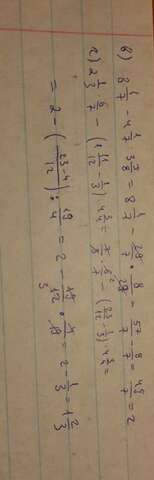 б) 8 1/7 - 4 1/7 : 3 7/8 = 8 1/7 - 29/7 · 8/29 = 57/7 - 8/7 = 49/7 = 2
г) 2 1/3 · 6/7 - (1 11/12 - 1/3) : 4 3/4 = 7/3 · 6/7 - (23/12 - 1/3) : 4 3/4 =
= 2 - (23-4/12) : 19/4 = 2 - 19/12 · 4/19 = 2 - 1/3 = 1 2/3